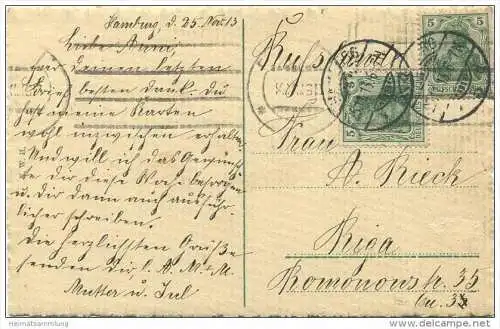 Hamburg, d. 25. Nov. 13
Liebe Anni,
Für Deinen letzten
Brief besten Dank. Du
hast meine Karten
wohl inzwischen erhalten.
Und will ich das Gewünschte
Dir diese Woche besorgen
u. Dir dann auch ausführ-
licher schreiben.
Die herzlichsten Grüße
senden Dir, l. A. M. & M.
Mutter u. Iul
Russland
Frau
A. Rieck
Riga
Romonowstr. 35
Qu. 35
5
5
heimatsammlung